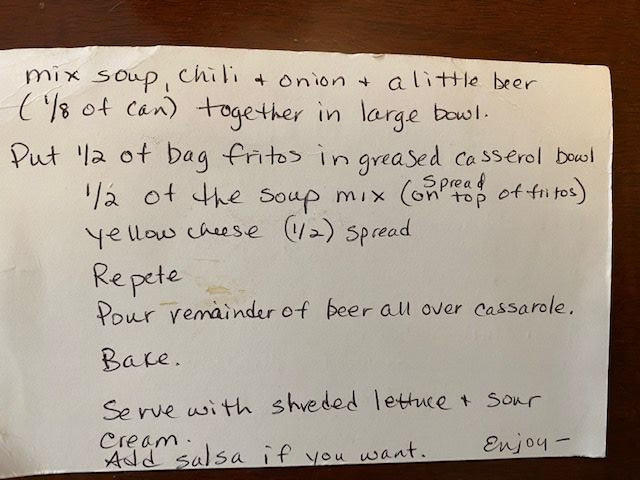 mix soup, chili + onion + a little beer
(1/8 of can) together in large bowl.
Put 1/2 of bag fritos in greased casserol bowl
1/2 of the soup mix (Spread on top of fritos)
yellow cheese (1/2) spread
Repete
Pour remainder of beer all over cassarole.
Bake.
Serve with shreded lettuce + sour
cream.
Add salsa if you want. Enjoy —